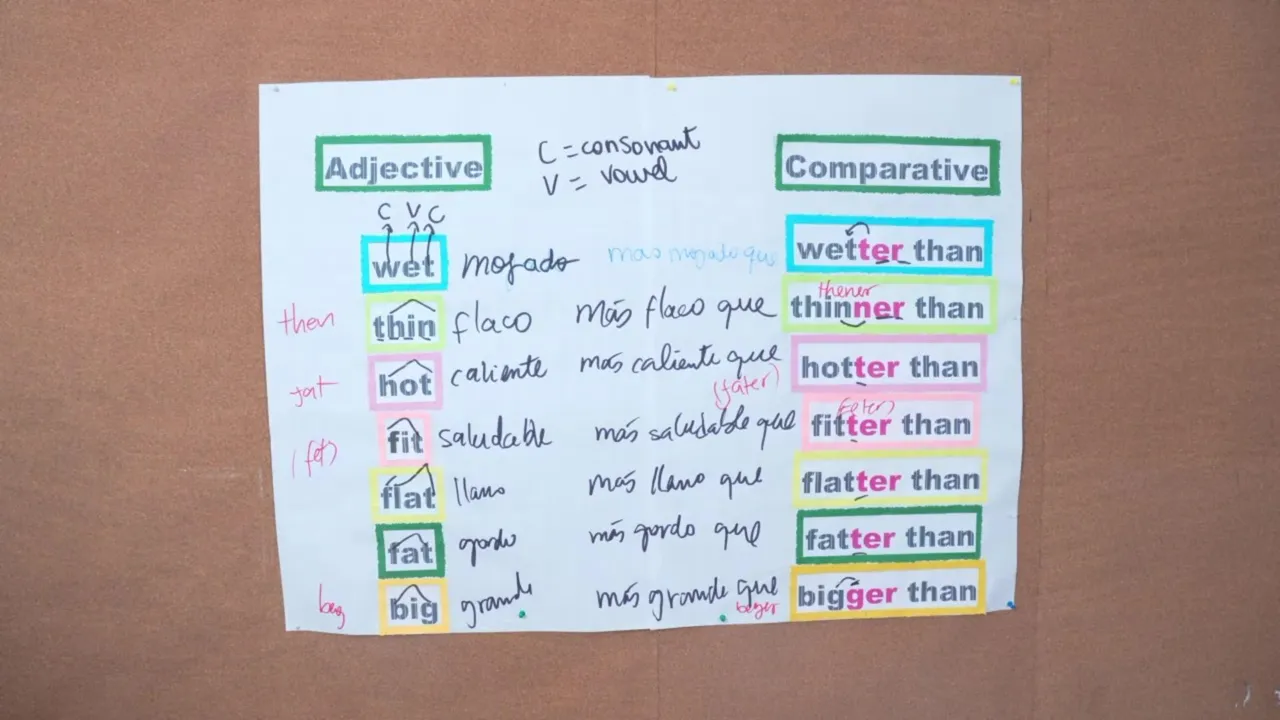 Adjective
C = consonant
V = vowel
Comparative
C V C
wet mojado mas mojado que wetter than
thener
then thin flaco más flaco que thinner than
hot caliente más caliente que hotter than
fat (fater)
(feter)
fit saludable más saludable que fitter than
(fet)
flat llano más llano que flatter than
fat gordo más gordo que fatter than
beg big grande más grande que bigger than
beger